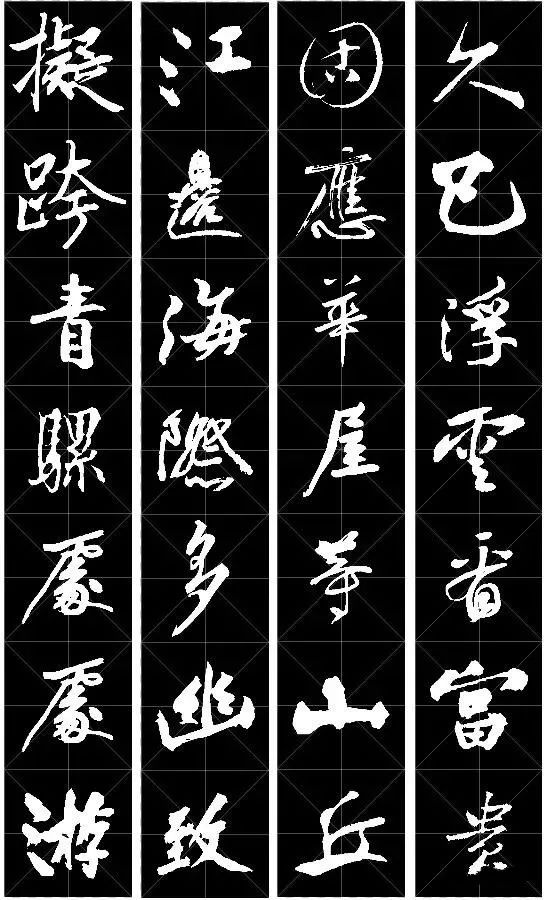 久已浮雲看富貴
固應華屋等山丘
江邊海際多幽致
擬跨青騾處處游